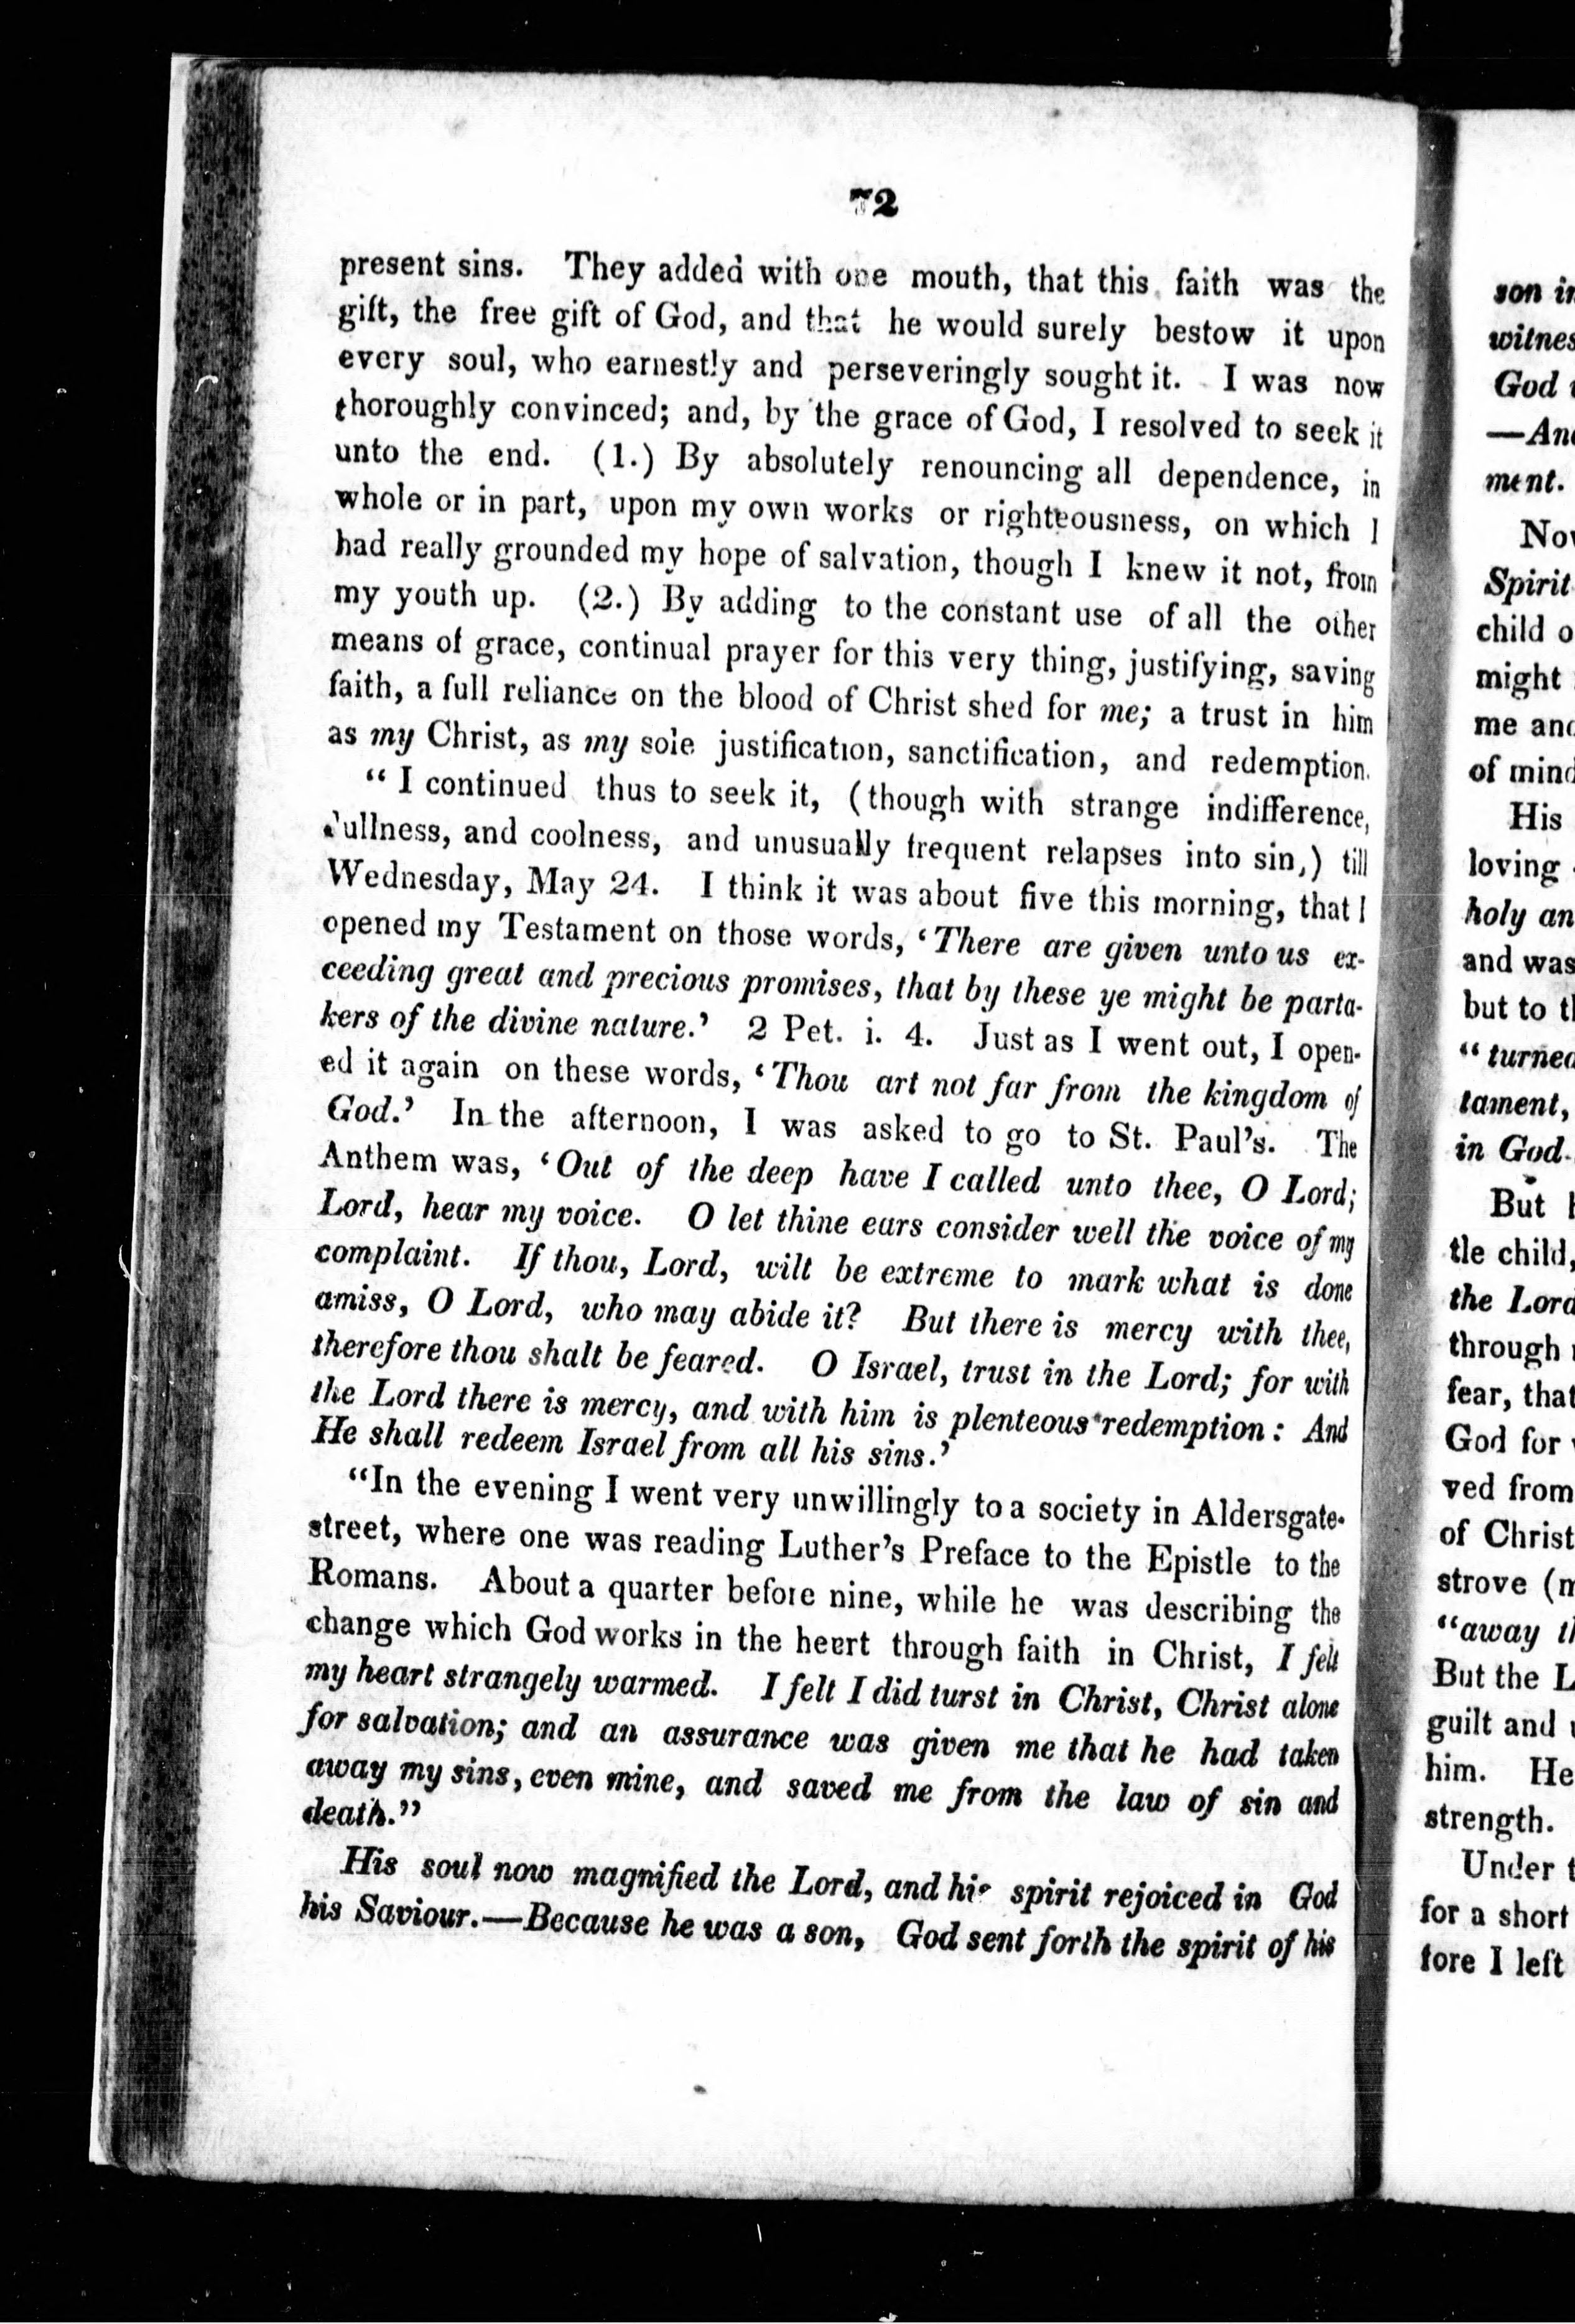 72
present sins. They added with one mouth, that this faith was the
gift, the free gift of God, and that he would surely bestow it upon
every soul, who earnestly and perseveringly sought it. I was now
thoroughly convinced; and, by the grace of God, I resolved to seek it
unto the end. (1.) By absolutely renouncing all dependence, in
whole or in part, upon my own works or righteousness, on which I
had really grounded my hope of salvation, though I knew it not, from
my youth up. (2.) By adding to the constant use of all the other
means of grace, continual prayer for this very thing, justifying, saving
faith, a full reliance on the blood of Christ shed for me; a trust in him
as my Christ, as my sole justification, sanctification, and redemption.
“ I continued thus to seek it, (though with strange indifference,
dullness, and coolness, and unusually frequent relapses into sin,) till
Wednesday, May 24. I think it was about five this morning, that I
opened my Testament on those words, ‘There are given unto us ex-
ceeding great and precious promises, that by these ye might be parta-
kers of the divine nature.’ 2 Pet. i. 4. Just as I went out, I open-
ed it again on these words, ‘Thou art not far from the kingdom of
God.’ In the afternoon, I was asked to go to St. Paul’s. The
Anthem was, ‘Out of the deep have I called unto thee, O Lord;
Lord, hear my voice. O let thine ears consider well the voice of my
complaint. If thou, Lord, wilt be extreme to mark what is done
amiss, O Lord, who may abide it? But there is mercy with thee,
therefore thou shalt be feared. O Israel, trust in the Lord; for with
the Lord there is mercy, and with him is plenteous redemption: And
He shall redeem Israel from all his sins.’
“In the evening I went very unwillingly to a society in Aldersgate-
street, where one was reading Luther’s Preface to the Epistle to the
Romans. About a quarter before nine, while he was describing the
change which God works in the heert through faith in Christ, I felt
my heart strangely warmed. I felt I did turst in Christ, Christ alone
for salvation; and an assurance was given me that he had taken
away my sins, even mine, and saved me from the law of sin and
death.”
His soul now magnified the Lord, and his spirit rejoiced in God
his Saviour.—Because he was a son, God sent forth the spirit of his
son in
witnes
God
—And
ment.
Now
Spirit
child o
might
me and
of mind
His
loving
holy an
and was
but to th
“ turned
tament,
in God
But
tle child,
the Lord
through
fear, that
God for
ved from
of Christ
strove (m
“away th
But the L
guilt and
him. He
strength.
Under t
for a short
fore I left